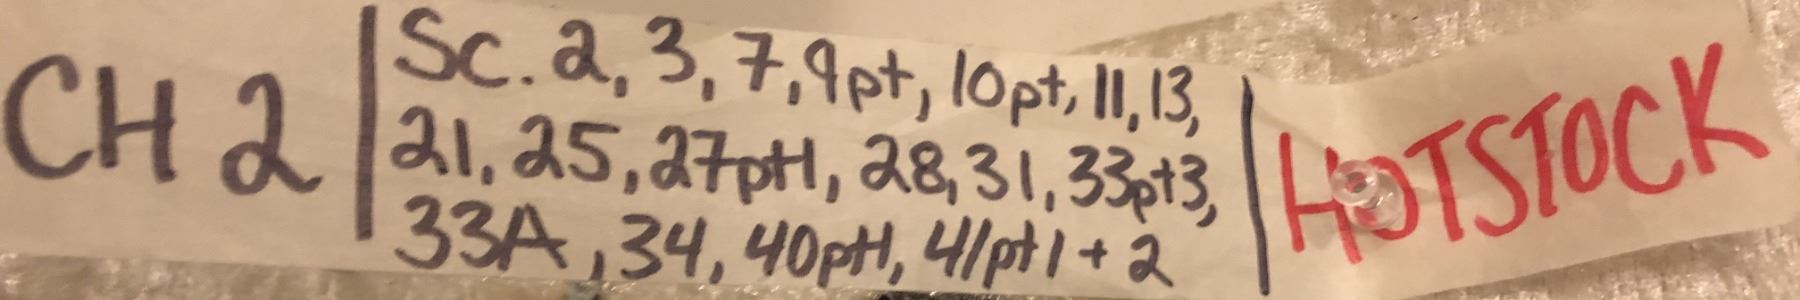 CH 2
Sc. 2, 3, 7, 9pt, 10pt, 11, 13,
21, 25, 27pt1, 28, 31, 33pt3,
33A, 34, 40pt1, 41pt1 + 2
HOTSTOCK